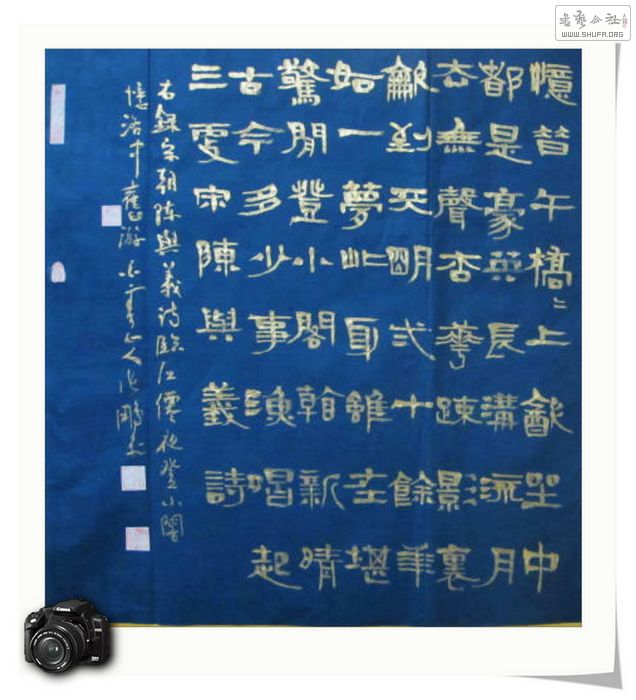 書藝公社
WWW.SHUFA.ORG
憶昔午橋〻上飲坐中
都是豪英長溝流月
去無聲杏蕐踈影裏
龡到天明弍十餘年
如一夢此身雖在堪
驚閒登小閣翰新晴
古今多少事漁唱起
三更宋陳與義詩
右錄宋朝陳與義詩臨江僊夜登小閣
憶洛中舊游
Canon